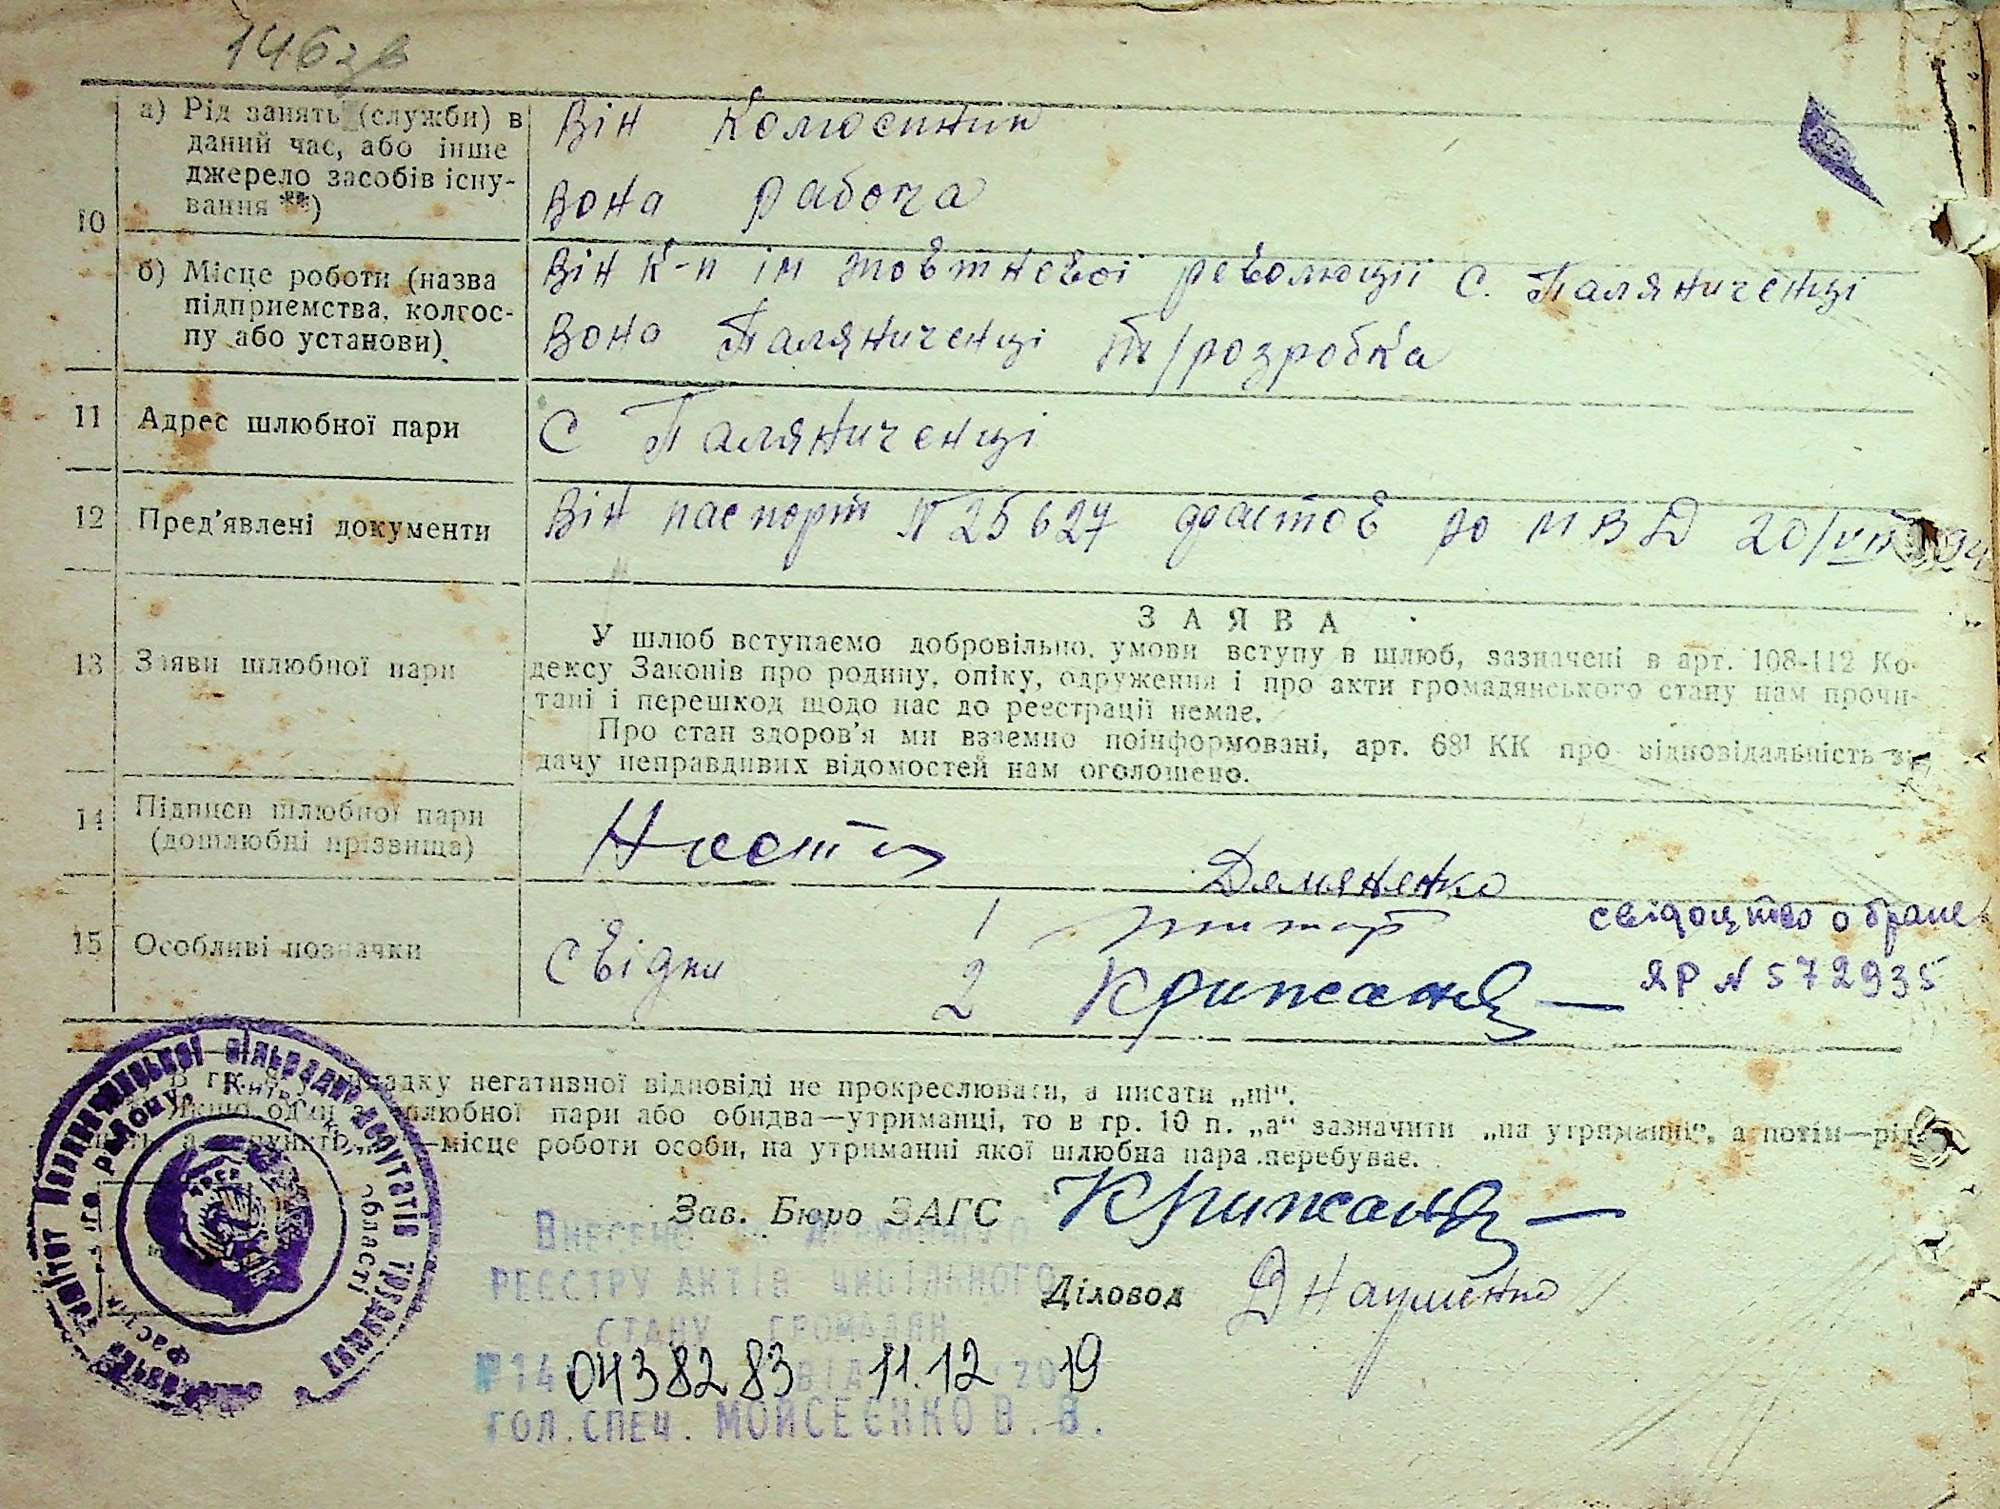 146зв
а) Рід занять (служби) в
даний час, або інше
джерело засобів існу-
вання **)
Він Колгоспник
Вона рабоча
10
б) Місце роботи (назва
підприємства, колгос-
пу або установи)
Він к-п ім жовтневої революції с. Паляниченці
Вона Паляниченці Т/розробка
11 Адрес шлюбної пари
с Паляниченці
12 Пред'явлені документи
Він паспорт N 25627 фастов ро МВД 20/VII
13 Заяви шлюбної пари
ЗАЯВА
У шлюб вступаємо добровільно, умови вступу в шлюб, зазначені в арт. 108-112 Ко-
дексу Законів про родину, опіку, одруження і про акти громадянського стану нам прочи-
тані і перешкод щодо нас до реєстрації немає.
Про стан здоров'я ми взаємно поінформовані, арт. 68¹ КК про відповідальність за
дачу неправдивих відомостей нам оголошено.
14 Підписи шлюбної пари
(дошлюбні прізвища)
Демяненко
15 Особливі позначки
Свідки 1
2 Крижанів
свідоцтво о браке
ЯР N 572935
В гр. випадку негативної відповіді не прокреслювати, а писати „ні“.
Якщо один з шлюбної пари або обидва—утриманці, то в гр. 10 п. „а“ зазначити „на утриманні“, а потім—рід
—місце роботи особи, на утриманні якої шлюбна пара перебуває.
Зав. Бюро ЗАГС Крижанів
Діловод Д Науменко
Внесено Державного
реєстру актів цивільного
стану громадян
№ 14 04382 83 від 11.12 2019
гол. спец. Мойсеєнко В. В.